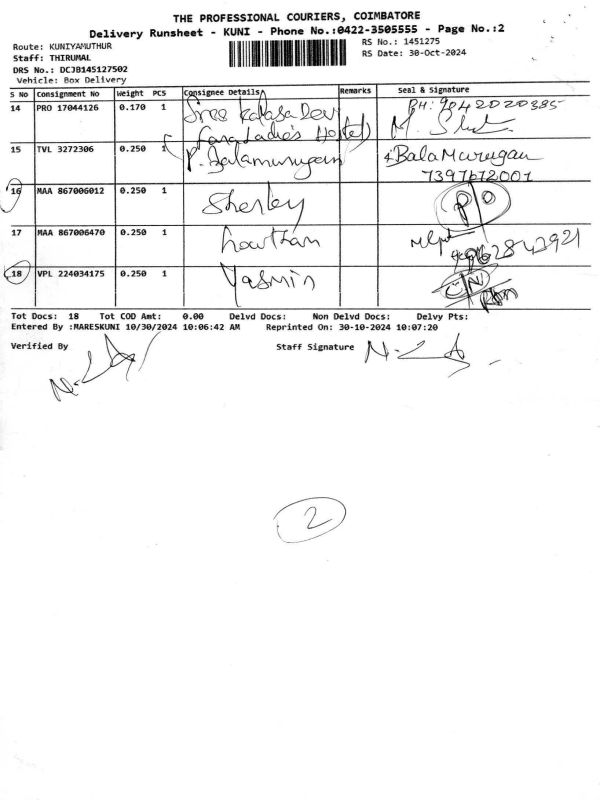 THE PROFESSIONAL COURIERS, COIMBATORE
Delivery Runsheet - KUNI - Phone No.:0422-3505555 - Page No.:2
Route: KUNIYAMUTHUR
RS No.: 1451275
Staff: THIRUMAL
RS Date: 30-Oct-2024
DRS No.: DCJB145127502
Vehicle: Box Delivery
S No Consignment No Weight PCS Consignee Details Remarks Seal & Signature
14 PRO 17044126 0.170 1 Sree PH: 9042020385
Ladie's Hostel)
15 TVL 3272306 0.250 1 P. Balamurugan BalaMurugan
7397672001
16 MAA 867006012 0.250 1 Sherley P/O
17 MAA 867006470 0.250 1
18 VPL 224034175 0.250 1 Yasmin
Tot Docs: 18 Tot COD Amt: 0.00 Delvd Docs: Non Delvd Docs: Delvy Pts:
Entered By :MARESKUNI 10/30/2024 10:06:42 AM Reprinted On: 30-10-2024 10:07:20
Verified By Staff Signature
2